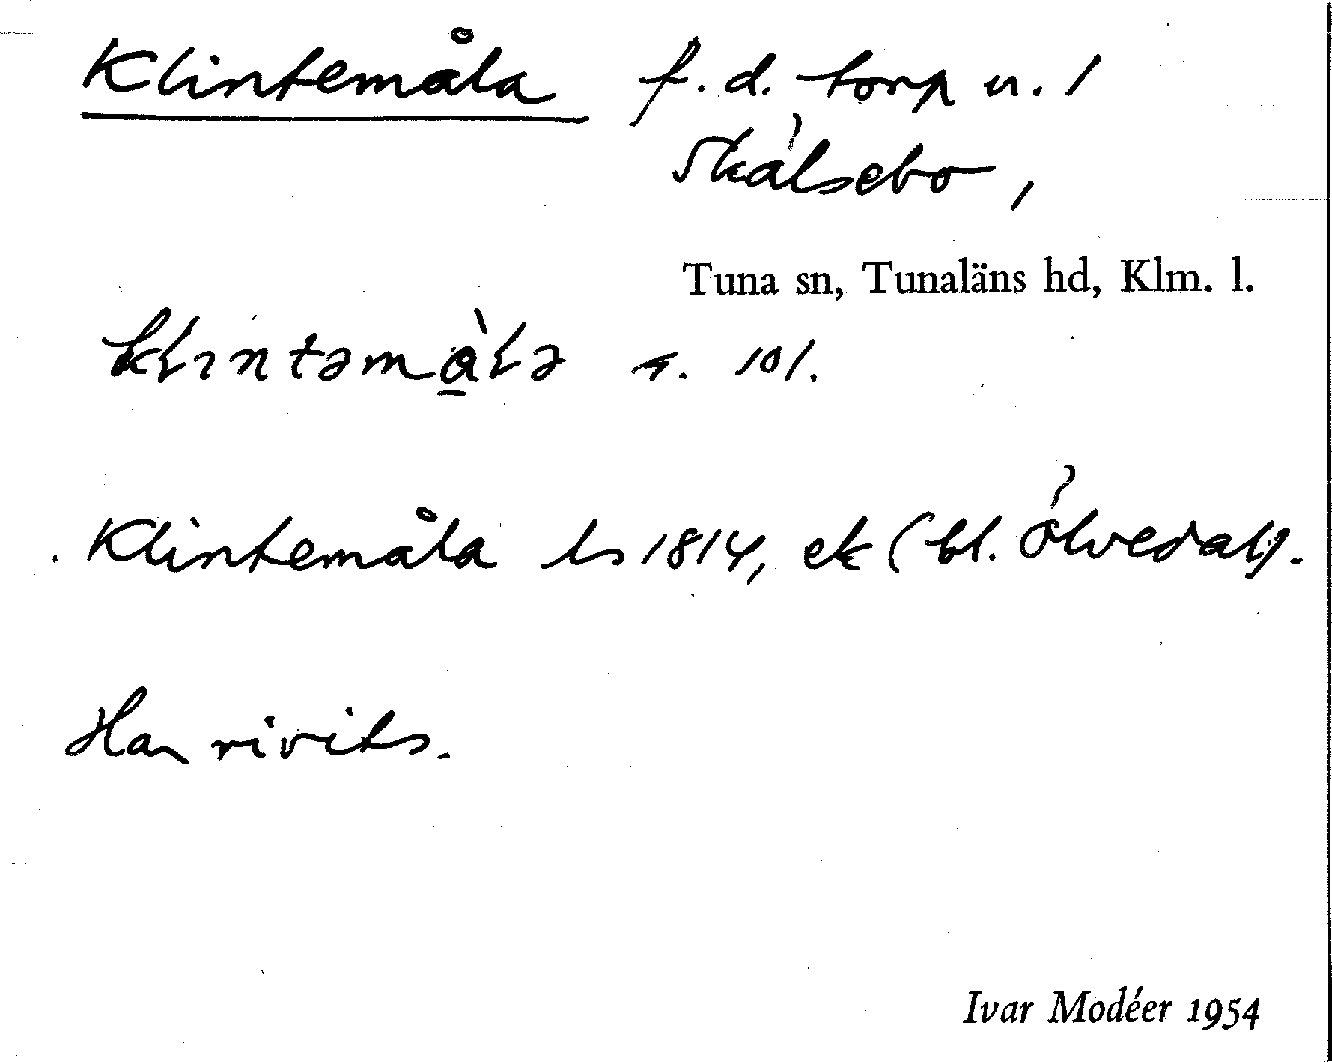 Klintemåla f. d. torp u. /
Skälsebo,
Tuna sn, Tunaläns hd, Klm. l.
klintəmàlə s. 101.
Klintemåla ls 1814, ek (bl. Ölvedal).
Har rivits.
Ivar Modéer 1954